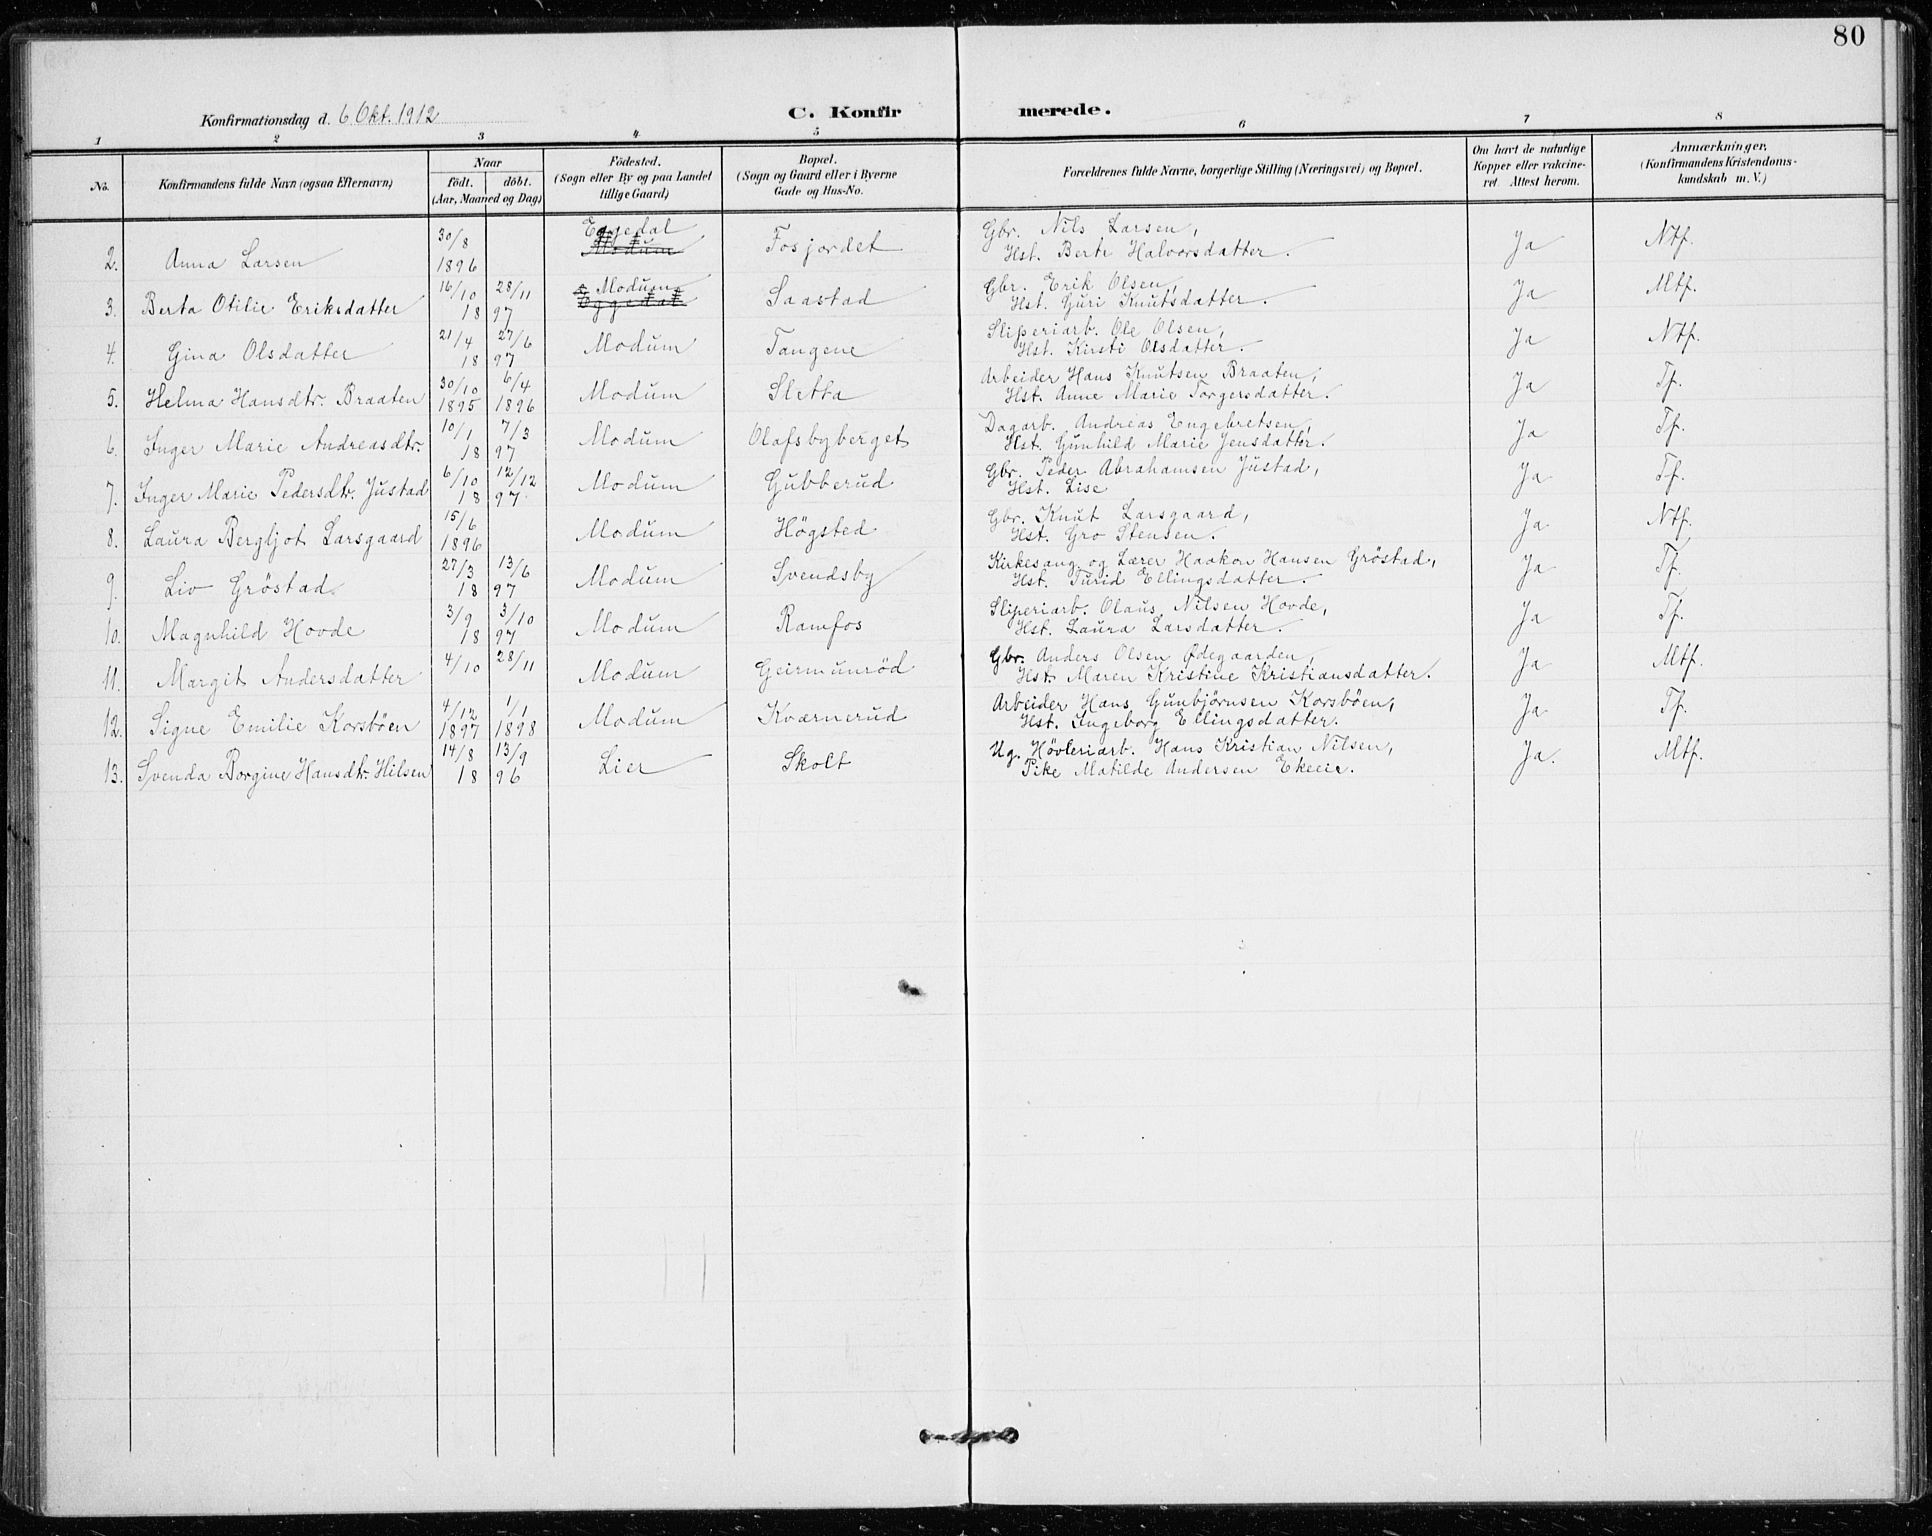 80
Konfirmationsdag d. 6 Okt. 1912
C. Konfirmerede.
1 2 3 4 5 6 7 8
No.
Konfirmandens fulde Navn (ogsaa Efternavn)
Naar
födt. döbt.
(Aar, Maaned og Dag)
Födested.
(Sogn eller By og paa Landet
tillige Gaard)
Bopæl.
(Sogn og Gaard eller i Byerne
Gade og Hus-No.
Forældrenes fulde Navne, borgerlige Stilling (Næringsvei) og Bopæl.
Om havt de naturlige
Kopper eller vakcine-
ret. Attest herom.
Anmærkninger.
(Konfirmandens Kristendoms-
kundskab m. V.)
2. Anna Larsen 30/8 1896 Eggedal Modum Fosjordet Gbr. Nils Larsen, Ja Ntf.
Hst. Berte Halvorsdatter.
3. Berta Otilie Eriksdatter 16/10 28/11 1897 Modum Eggedal Saastad Gbr. Erik Olsen, Ja Mtf.
Hst. Guri Knutsdatter.
4. Gina Olsdatter 21/4 27/6 1897 Modum Tangene Sliperiarb. Ole Olsen, Ja Ntf.
Hst. Kirsti Olsdatter.
5. Helma Hansdtr. Braaten 30/10 1895 6/4 1896 Modum Sletta Arbeider Hans Knutsen Braaten, Ja Tf.
Hst. Anne Marie Torgersdatter.
6. Inger Marie Andreasdtr. 10/1 7/3 1897 Modum Olafsbyberget Dagarb. Andreas Engebretsen, Ja Tf.
Hst. Gunhild Marie Jensdatter.
7. Inger Marie Pedersdtr. Justad 6/10 12/12 1897 Modum Gubberud Gbr. Peder Abrahamsen Justad, Ja Tf.
Hst. Lise
8. Laura Bergljot Larsgaard 15/6 1896 Modum Högsted Gbr. Knut Larsgaard, Ja Ntf.
Hst. Gro Stensen.
9. Liv Gröstad 27/3 13/6 1897 Modum Svendsby Kirkesang. og Lærer Haakon Hansen Gröstad, Ja Tf.
Hst. Turid Ellingsdatter.
10. Magnhild Hovde 3/9 3/10 1897 Modum Ramfos Sliperiarb. Olaus Nilsen Hovde, Ja Tf.
Hst. Laura Larsdatter.
11. Margit Andersdatter 4/10 28/11 Modum Geirmunröd Gbr. Anders Olsen Ødegaarden, Ja Mtf.
Hst. Maren Kristine Kristiansdatter.
12. Signe Emilie Korsböen 4/12 1897 1/1 1898 Modum Kværnerud Arbeider Hans Gunbjörnsen Korsböen, Ja Tf.
Hst. Ingeborg Ellingsdatter.
13. Svenda Borgine Hansdtr. Hilsen 14/8 13/9 1896 Lier Skolt Ug. Hövleriarb. Hans Kristian Nilsen, Ja. Mtf.
Pike Matilde Andersen Ekeeie.